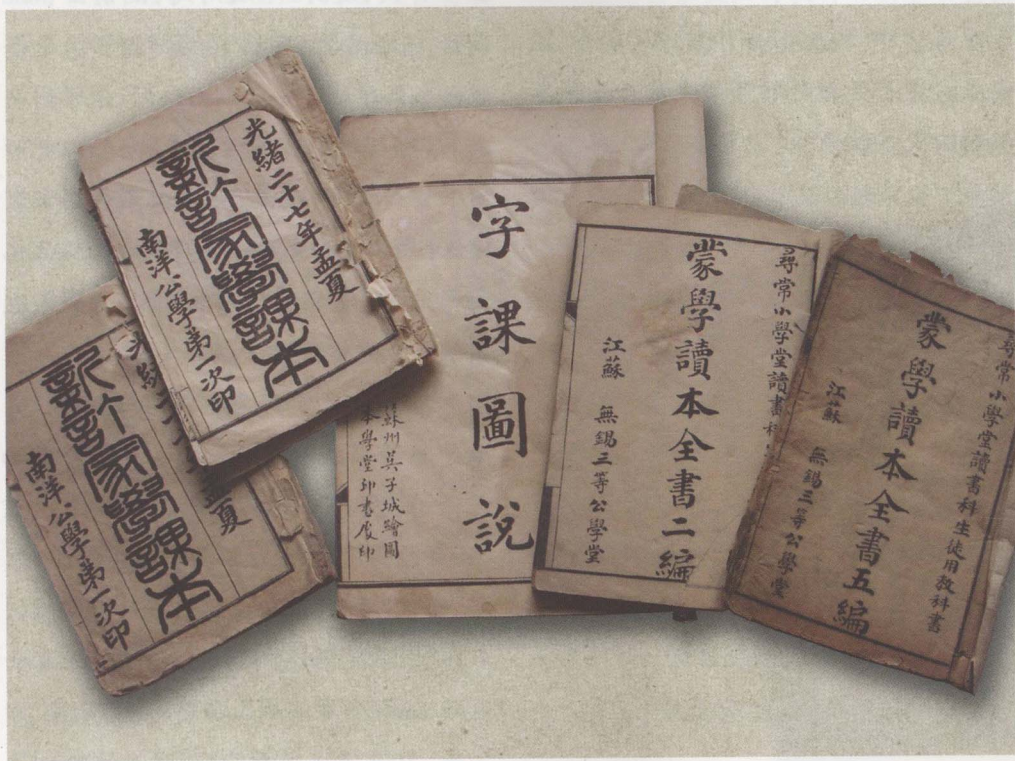 光緒二十七年孟夏
新訂蒙學課本
南洋公學第一次印
光緒
孟夏
新訂蒙學課本
南洋公學第一次印
字課圖說
蘇州吳子城繪圖
本學堂印書處印
尋常小學堂讀書科
蒙學讀本全書二編
江蘇 無錫三等公學堂
尋常小學堂讀書科生徒用教科書
蒙學讀本全書五編
江蘇 無錫三等公學堂